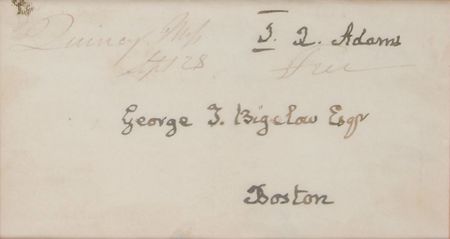 Quincy Ms
Apl 28
J. Q. Adams
Free
George T. Bigelow Esqr
Boston